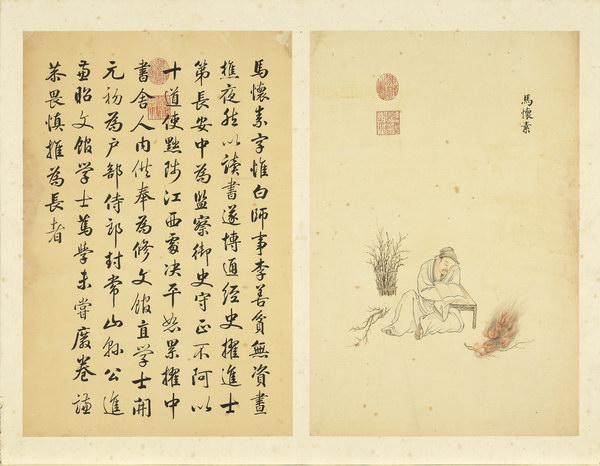 馬懷素
馬懷素字惟白師事李善貧無資晝
樵夜然以讀書遂博通經史擢進士
第長安中為監察御史守正不阿以
十道使黜陟江西處決平恕累擢中
書舍人內供奉為修文館直學士開
元初為戶部侍郎封常山縣公進
兼昭文館學士篤學未嘗廢卷謙
恭畏慎推為長者